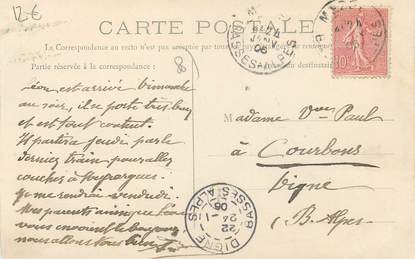 12€
CARTE POSTALE
La Correspondance au recto n'est pas
Partie réservée à la correspondance
du destinataire
Léon est arrivé dimanche
au soir, il se porte très bien
et est tout content.
Il partira jeudi par le
dernier train pour aller
coucher à Meyrargues.
Je me rendrai vendredi.
Mes parents ainsi que
vous envoient le bonjour
nous allons tous bien
Madame Vve Paul
à Courbons
Digne
B. Alpes
BASSES-ALPES
05
DIGNE
BASSES ALPES
22
24 -1
05
10